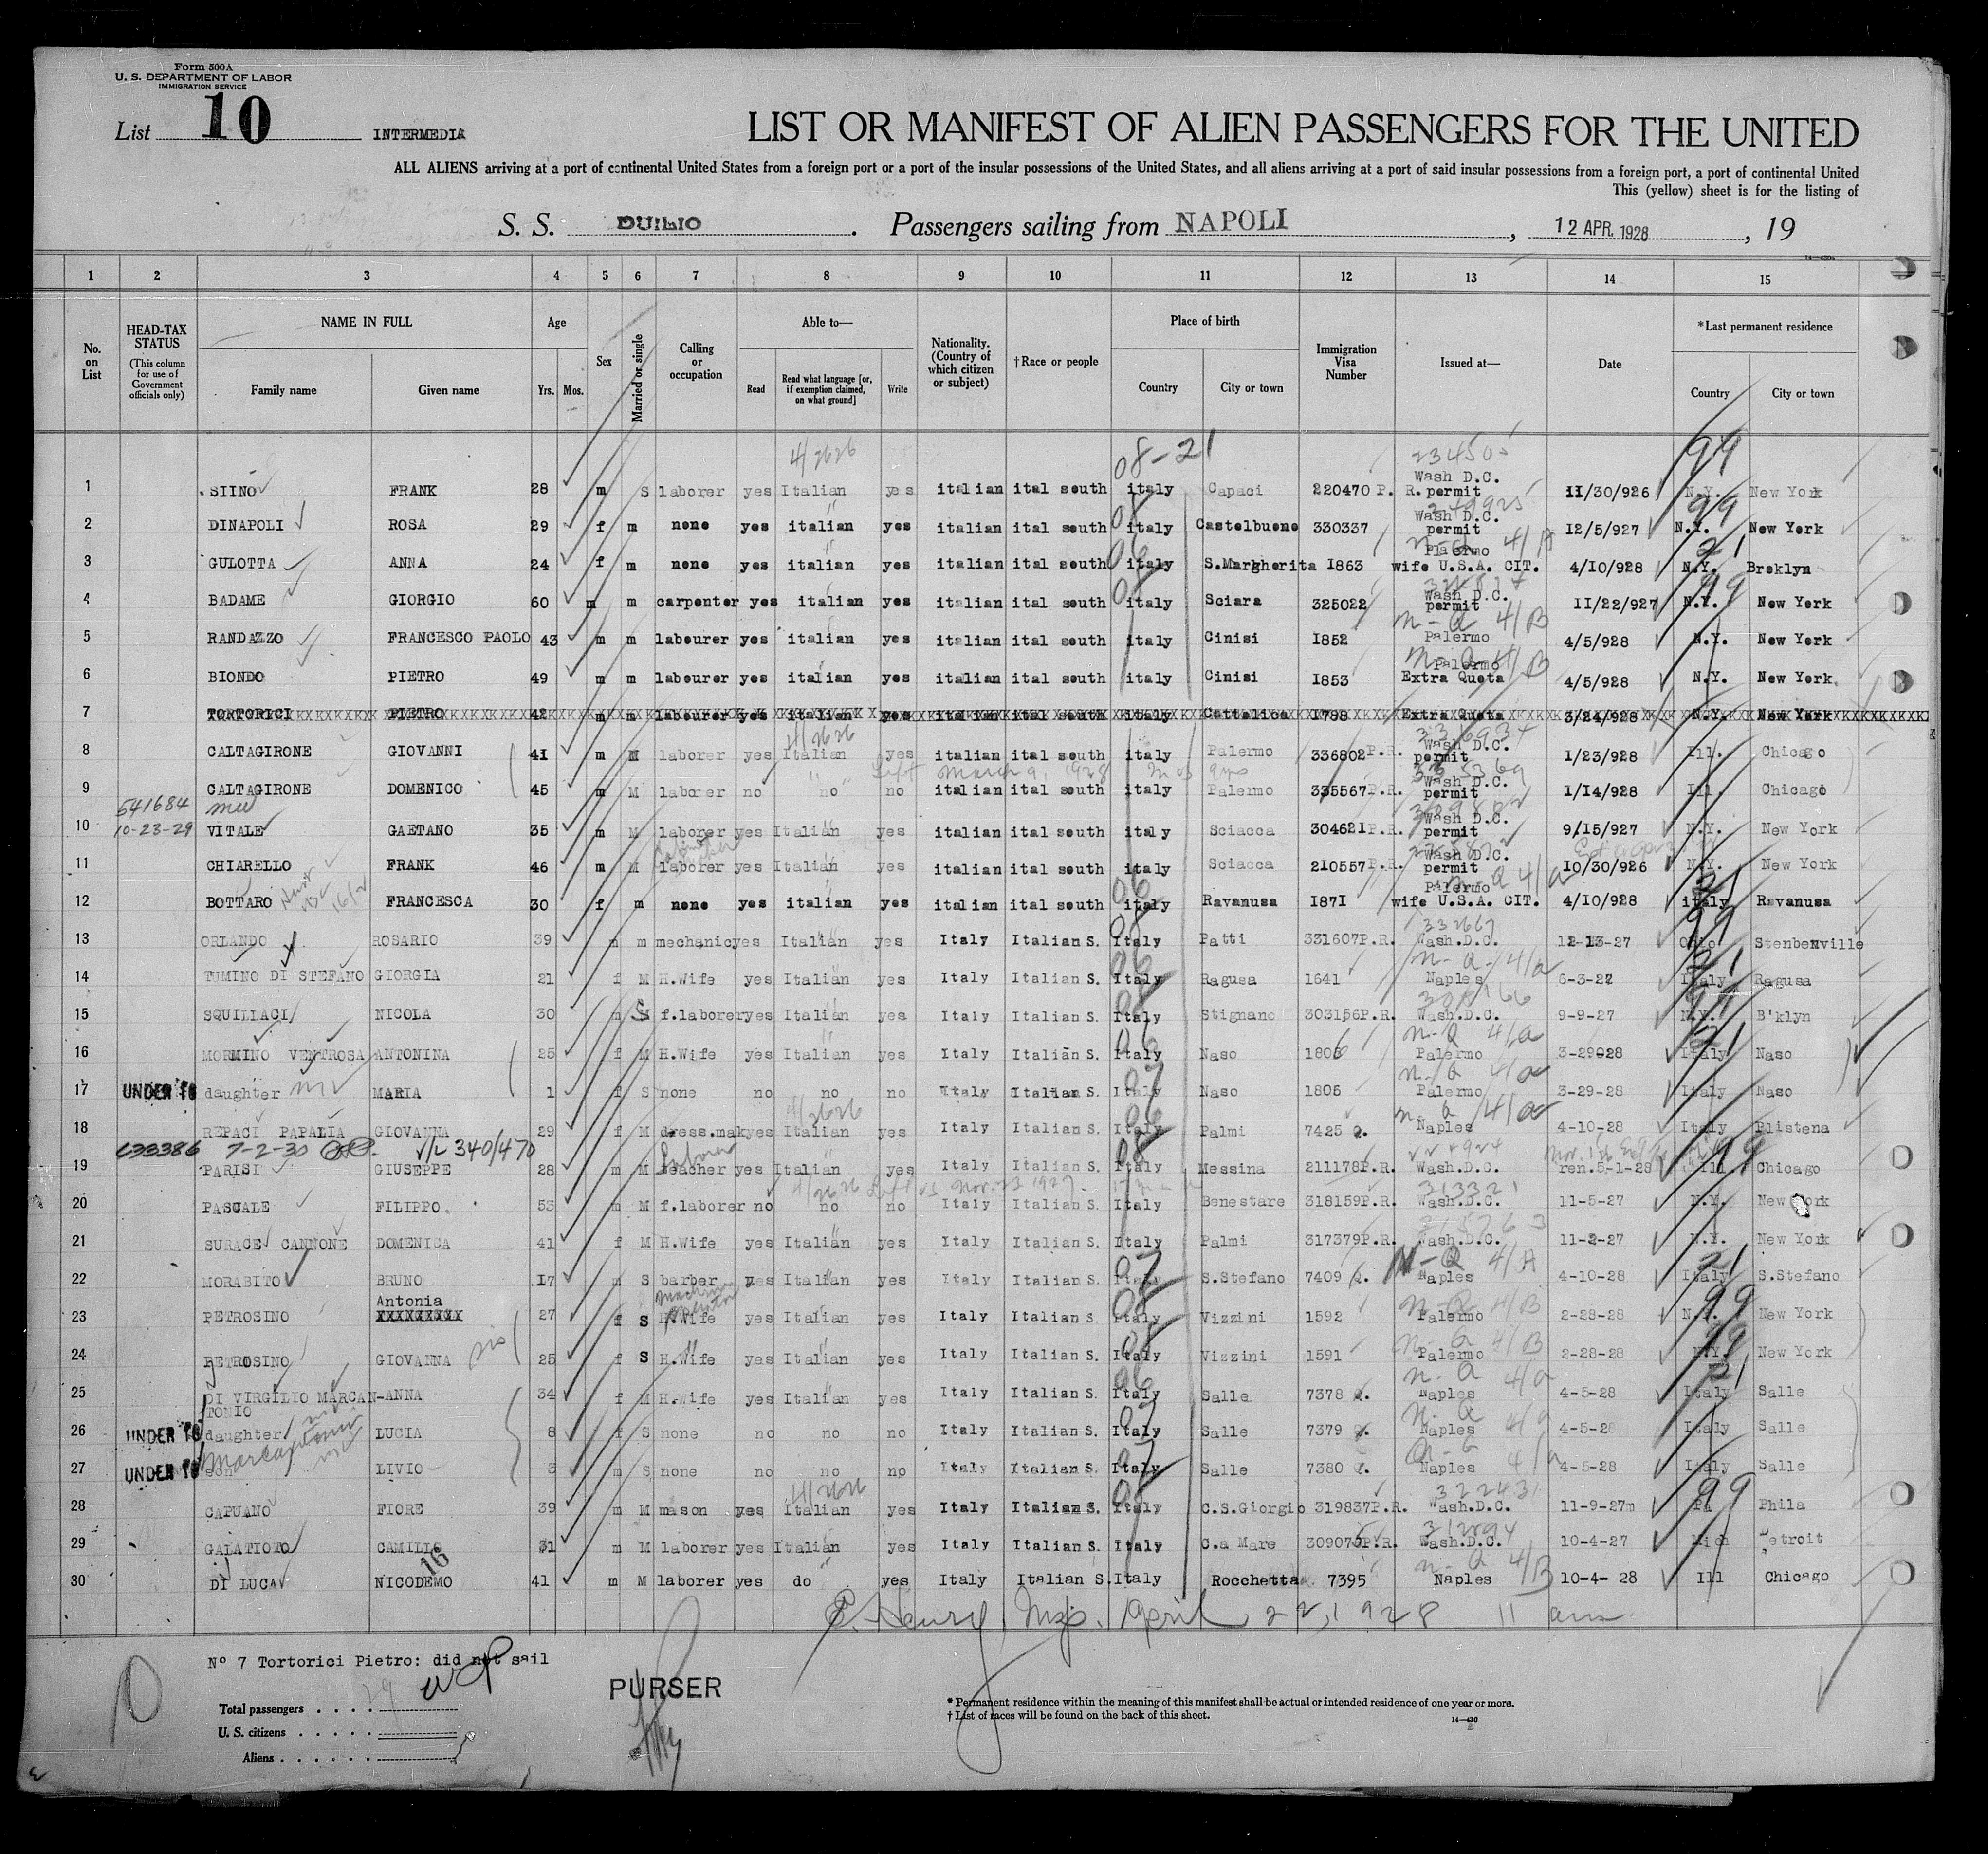 Form 500A
U. S. DEPARTMENT OF LABOR
IMMIGRATION SERVICE
List 10 INTERMEDIA
LIST OR MANIFEST OF ALIEN PASSENGERS FOR THE UNITED
ALL ALIENS arriving at a port of continental United States from a foreign port or a port of the insular possessions of the United States, and all aliens arriving at a port of said insular possessions from a foreign port, a port of continental United
This (yellow) sheet is for the listing of
S. S. DUILIO . Passengers sailing from NAPOLI , 12 APR. 1928 , 19
1 2 3 4 5 6 7 8 9 10 11 12 13 14 15
No. on List
HEAD-TAX STATUS (This column for use of Government officials only)
NAME IN FULL Family name Given name
Age Yrs. Mos.
Sex
Married or single
Calling or occupation
Able to— Read Read what language [or, if exemption claimed, on what ground] Write
Nationality. (Country of which citizen or subject)
†Race or people
Place of birth Country City or town
Immigration Visa Number
Issued at—
Date
*Last permanent residence Country City or town
4/2626 08-21 99
1 SIINO FRANK 28 m S laborer yes Italian yes italian ital south italy Capaci 220470 P. R. Wash D.C. permit 11/30/926 N.Y. New York
2 DINAPOLI ROSA 29 f m none yes italian yes italian ital south italy Castelbuono 330337 Wash D.C. permit 12/5/927 N.Y. New York
3 GULOTTA ANNA 24 f m none yes italian yes italian ital south italy S.Margherita 1863 Palermo wife U.S.A. CIT. 4/10/928 N.Y. Broklyn
4 BADAME GIORGIO 60 m m carpenter yes italian yes italian ital south italy Sciara 325022 Wash D.C. permit 11/22/927 N.Y. New York
5 RANDAZZO FRANCESCO PAOLO 43 m m labourer yes italian yes italian ital south italy Cinisi 1852 Palermo 4/5/928 N.Y. New York
6 BIONDO PIETRO 49 m m labourer yes italian yes italian ital south italy Cinisi 1853 Palermo Extra Quota 4/5/928 N.Y. New York
7 TORTORICI PIETRO 42 m m labourer yes italian yes italian ital south italy Cattolica 1798 Extra Quota 3/24/928 N.Y. New York
8 CALTAGIRONE GIOVANNI 41 m M laborer yes Italian yes italian ital south italy Palermo 336802 P.R. Wash D.C. permit 1/23/928 Ill. Chicago
9 CALTAGIRONE DOMENICO 45 m M laborer no no no italian ital south italy Palermo 335567 P.R. Wash D.C. permit 1/14/928 Ill. Chicago
541684
10 10-23-29 VITALE GAETANO 35 m M laborer yes Italian yes italian ital south italy Sciacca 304621 P.R. Wash D.C. permit 9/15/927 N.Y. New York
11 CHIARELLO FRANK 46 m M laborer yes Italian yes italian ital south italy Sciacca 210557 P.R. Wash D.C. permit 10/30/926 N.Y. New York
12 BOTTARO FRANCESCA 30 f m none yes italian yes italian ital south italy Ravanusa 1871 Palermo wife U.S.A. CIT. 4/10/928 italy Ravanusa
13 ORLANDO ROSARIO 39 m m mechanic yes Italian yes Italy Italian S. Italy Patti 331607P.R. Wash.D.C. 12-13-27 Ohio Stenbenville
14 TUMINO DI STEFANO GIORGIA 21 f M H.Wife yes Italian yes Italy Italian S. Italy Ragusa 1641 Naples 6-3-22 Italy Ragusa
15 SQUILLACI NICOLA 30 m S f.laborer yes Italian yes Italy Italian S. Italy Stignano 303156P.R. Wash.D.C. 9-9-27 N.Y. B'klyn
16 MORMINO VENTROSA ANTONINA 25 f M H.Wife yes Italian yes Italy Italian S. Italy Naso 1806 Palermo 3-29-28 Italy Naso
17 UNDER 16 daughter MARIA 1 f S none no no no Italy Italian S. Italy Naso 1805 Palermo 3-29-28 Italy Naso
18 REPACI PAPALIA GIOVANNA 29 f M dress.mak yes Italian yes Italy Italian S. Italy Palmi 7425 Q. Naples 4-10-28 Italy Plistena
C33386 7-2-30 V/L 340/470
19 PARISI GIUSEPPE 28 m M teacher yes Italian yes Italy Italian S. Italy Messina 211178P.R. Wash.D.C. ren.5-1-28 Ill Chicago
20 PASCALE FILIPPO 53 m M f.laborer no no no Italy Italian S. Italy Benestare 318159P.R. Wash.D.C. 11-5-27 N.Y. New York
21 SURACE CANNONE DOMENICA 41 f M H.Wife yes Italian yes Italy Italian S. Italy Palmi 317379P.R. Wash.D.C. 11-2-27 N.Y. New York
22 MORABITO BRUNO 17 m S barber yes Italian yes Italy Italian S. Italy S.Stefano 7409 Q. Naples 4-10-28 Italy S.Stefano
23 PETROSINO Antonia 27 f S H.Wife yes Italian yes Italy Italian S. Italy Vizzini 1592 Palermo 2-28-28 N.Y. New York
24 PETROSINO GIOVANNA 25 f S H.Wife yes Italian yes Italy Italian S. Italy Vizzini 1591 Palermo 2-28-28 N.Y. New York
25 DI VIRGILIO MARCAN-TONIO ANNA 34 f M H.Wife yes Italian yes Italy Italian S. Italy Salle 7378 Q. Naples 4-5-28 Italy Salle
26 UNDER 16 daughter LUCIA 8 f S none no no no Italy Italian S. Italy Salle 7379 Q. Naples 4-5-28 Italy Salle
27 UNDER 16 son LIVIO 3 m S none no no no Italy Italian S. Italy Salle 7380 Q. Naples 4-5-28 Italy Salle
28 CAPUANO FIORE 39 m M mason yes Italian yes Italy Italian S. Italy C.S.Giorgio 319837P.R. Wash.D.C. 11-9-27m Pa Phila
29 GALATIOTO CAMILLO 31 m M laborer yes Italian yes Italy Italian S. Italy C.a Mare 309075P.R. Wash.D.C. 10-4-27 Mich Detroit
30 DI LUCA NICODEMO 41 m M laborer yes do yes Italy Italian S. Italy Rocchetta 7395 Naples 10-4- 28 Ill Chicago
16
Henry, Insp. April 22, 1928 11 am
Nº 7 Tortorici Pietro: did not sail
Total passengers . . . .
U. S. citizens . . . . .
Aliens . . . . . .
PURSER
* Permanent residence within the meaning of this manifest shall be actual or intended residence of one year or more.
† List of races will be found on the back of this sheet.
14—430